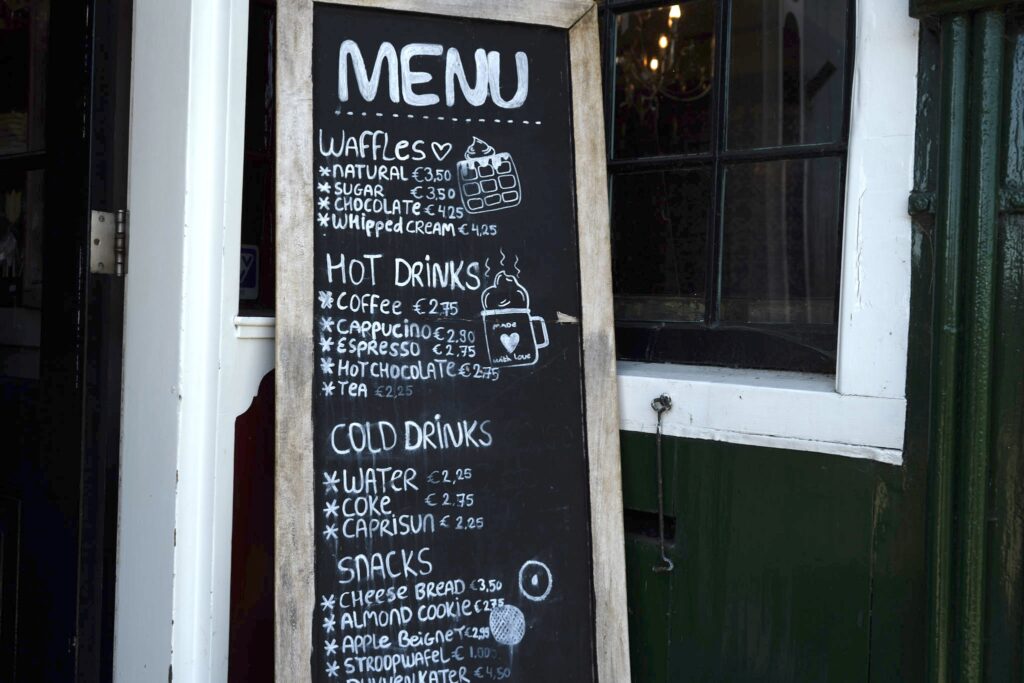 MENU
WAFFLES ♡
* NATURAL €3,50
* SUGAR €3,50
* CHOCOLATE €4,25
* WHIPPED CREAM €4,25
HOT DRINKS
* COFFEE €2,75
* CAPPUCINO €2,90
* ESPRESSO €2,75
* HOT CHOCOLATE €2,75
* TEA €2,25
made
with love
COLD DRINKS
* WATER €2,25
* COKE €2,75
* CAPRISUN €2,25
SNACKS
* CHEESE BREAD €3,50
* ALMOND COOKIE €2,75
* APPLE BEIGNET €2,95
* STROOPWAFEL €1.00
KATER €4,50